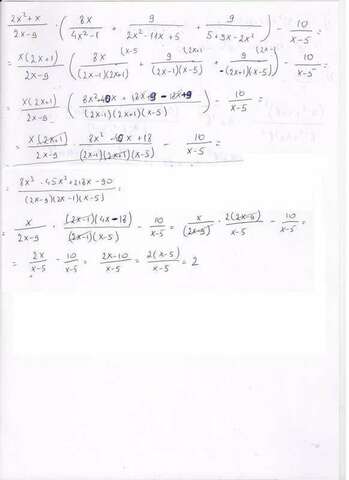 (2x²+x)/(2x-9) · (8x/(4x²-1) + 9/(2x²-11x+5) + 9/(5+9x-2x²)) - 10/(x-5) =
= x(2x+1)/(2x-9) (8x (x-5/((2x-1)(2x+1)) + 9 (2x+1/((2x-1)(x-5)) + 9 (2x-1/(-(2x+1)(x-5))) - 10/(x-5) =
= x(2x+1)/(2x-9) · ((8x²-40x+18x+9-18x+9)/((2x-1)(2x+1)(x-5))) - 10/(x-5) =
= x(2x+1)/(2x-9) · (8x²-40x+18)/((2x-1)(2x+1)(x-5)) - 10/(x-5) =
= x/(2x-9) · (2x-1)(4x-18)/((2x-1)(x-5)) - 10/(x-5) = x/(2x-9) · 2(2x-9)/(x-5) - 10/(x-5) =
= 2x/(x-5) - 10/(x-5) = (2x-10)/(x-5) = 2(x-5)/(x-5) = 2